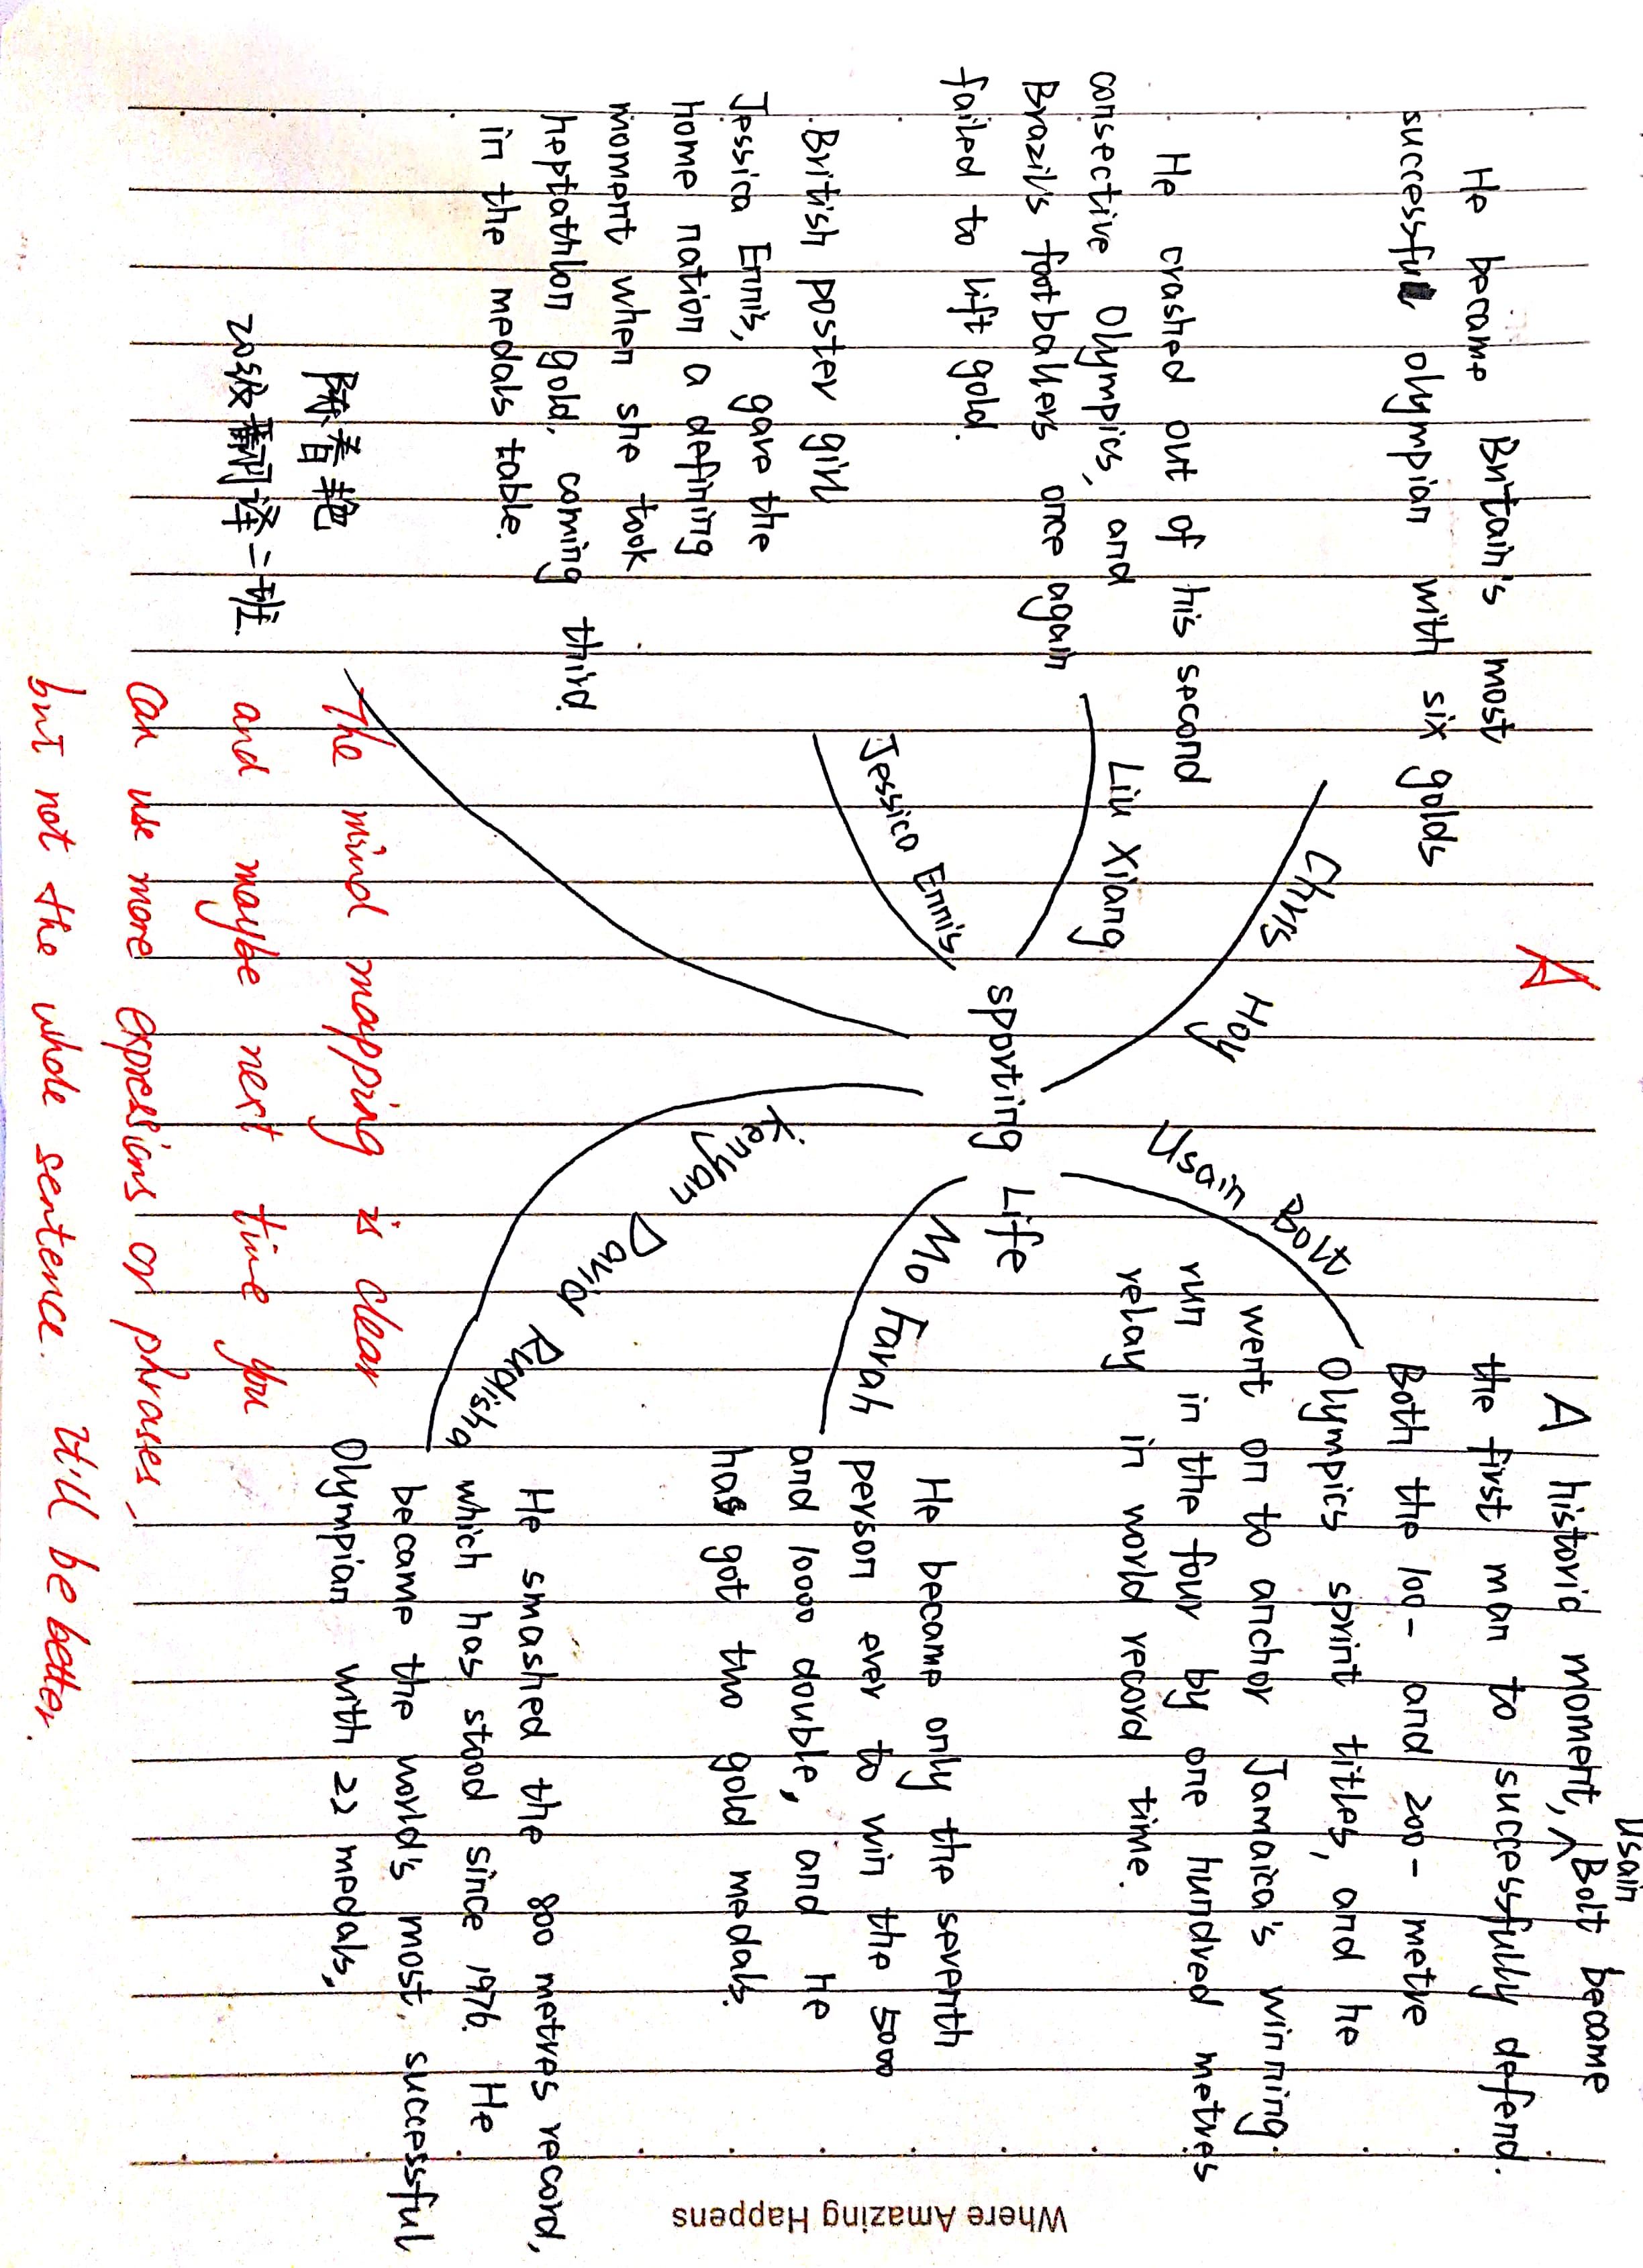 A
He became Britain's most
successful olympian with six golds
Chris Hoy
He crashed out of his second
consective Olympics, and
Brazil's footballers once again
failed to lift gold.
Liu Xiang
British poster girl
Jessica Ennis, gave the
home nation a defining
moment when she took
heptathlon gold, coming third.
in the medals table.
Jessica Ennis
sporting Life
Usain Bolt
Usain
A historic moment, ^ Bolt became
the first man to successfully defend.
Both the 100- and 200-metre
Olympics sprint titles, and he
went on to anchor Jamaica's winning
run in the four by one hundred metres
relay in world record time.
Mo Farah
He became only the seventh
person ever to win the 5000
and 10000 double, and he
has got two gold medals.
Kenyan David Rudisha
He smashed the 800 metres record,
which has stood since 1976. He
became the world's most successful
Olympian with 22 medals,
陈春艳
20级翻译二班.
The mind mapping is clear
and maybe next time you
can use more expressions or phrases,
but not the whole sentence. It'll be better.
Where Amazing Happens